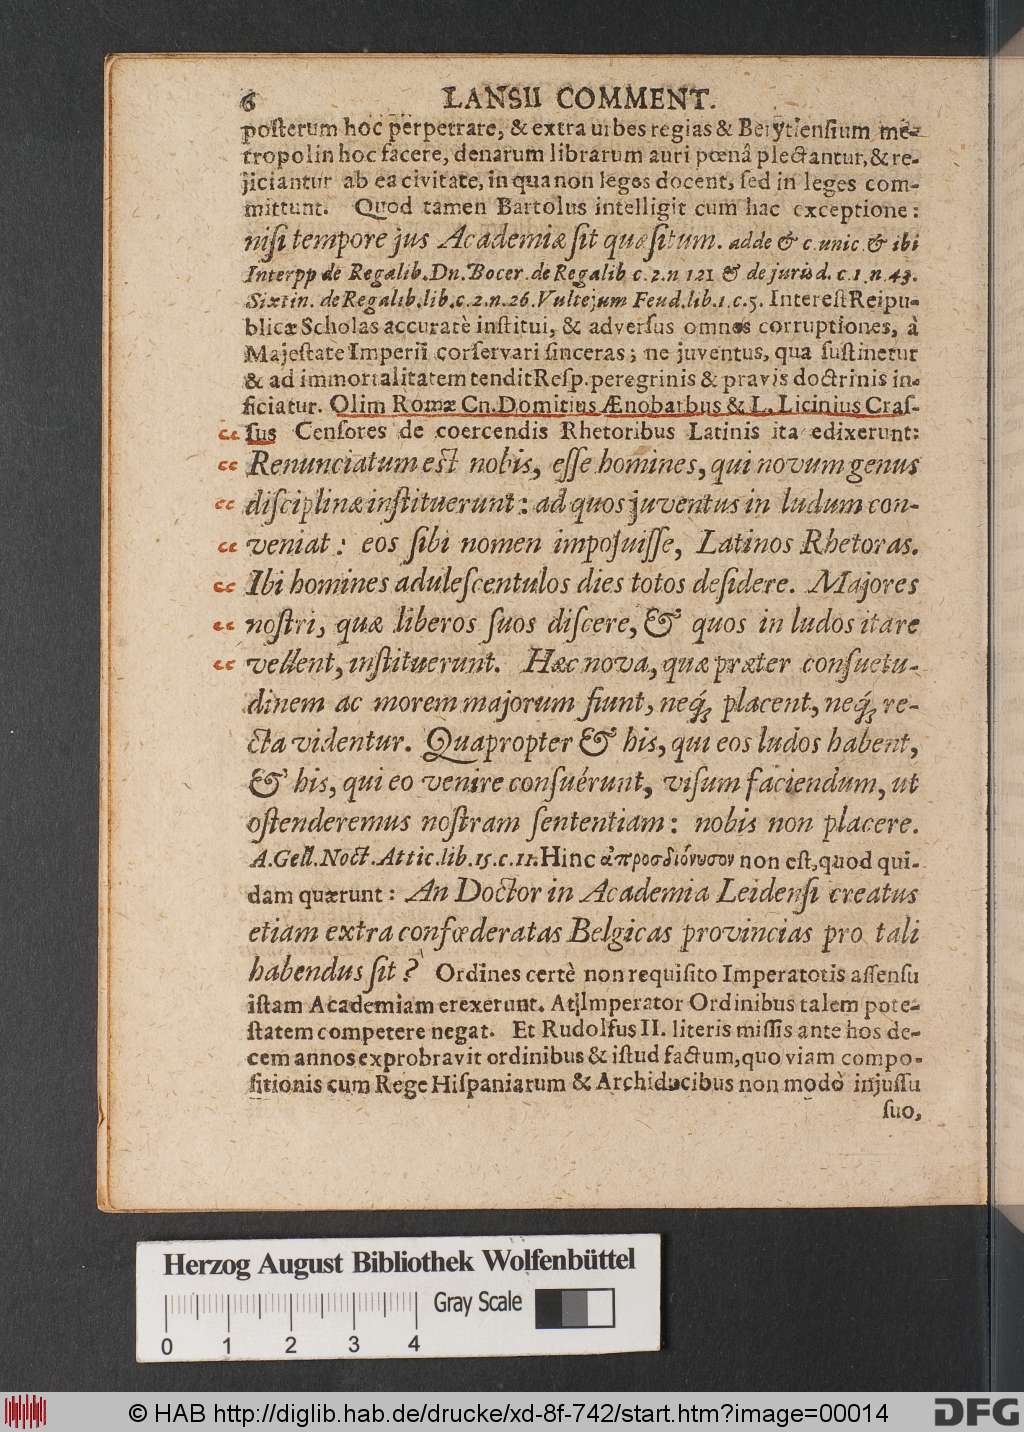 6 LANSII COMMENT.
poſterum hoc perpetrare, & extra urbes regias & Berytienſium me-
tropolin hoc facere, denarum librarum auri pœnâ plectantur, & re-
jiciantur ab ea civitate, in qua non leges docent, ſed in leges com-
mittunt. Quod tamen Bartolus intelligit cum hac exceptione:
niſi tempore jus Academiæ ſit quæſitum. adde & c. unic. & ibi
Interpp de Regalib. Dn. Bocer. de Regalib c. 2. n 121 & de jurisd. c. 1. n. 43.
Sixtin. de Regalib. lib. c. 2. n. 26. Vultejum Feud. lib. 1. c. 5. Intereſt Reipu-
blicæ Scholas accuratè inſtitui, & adverſus omnes corruptiones, à
Majeſtate Imperii conſervari ſinceras; ne juventus, qua ſuſtinetur
& ad immortalitatem tendit Reſp. peregrinis & pravis doctrinis in-
ficiatur. Olim Romæ Cn. Domitius Ænobarbus & L. Licinius Craſ-
ſus Cenſores de coercendis Rhetoribus Latinis ita edixerunt:
Renunciatum eſt nobis, eſſe homines, qui novum genus
diſciplinæ inſtituerunt: ad quos juventus in ludum con-
veniat: eos ſibi nomen impoſuiſſe, Latinos Rhetoras.
Ibi homines aduleſcentulos dies totos deſidere. Majores
noſtri, quæ liberos ſuos diſcere, & quos in ludos itare
vellent, inſtituerunt. Hæc nova, quæ præter conſuetu-
dinem ac morem majorum fiunt, neq́; placent, neq́; re-
cta videntur. Quapropter & his, qui eos ludos habent,
& his, qui eo venire conſuérunt, viſum faciendum, ut
oſtenderemus noſtram ſententiam: nobis non placere.
A. Gell. Noct. Attic. lib. 15. c. 11. Hinc ἀπροσδιόνυσον non eſt, quod qui-
dam quærunt: An Doctor in Academia Leidenſi creatus
etiam extra confœderatas Belgicas provincias pro tali
habendus ſit? Ordines certè non requiſito Imperatoris aſſenſu
iſtam Academiam erexerunt. At Imperator Ordinibus talem pote-
ſtatem competere negat. Et Rudolfus II. literis miſſis ante hos de-
cem annos exprobravit ordinibus & iſtud factum, quo viam compo-
ſitionis cum Rege Hiſpaniarum & Archiducibus non modò injuſſu
ſuo,
Herzog August Bibliothek Wolfenbüttel
Gray Scale
0 1 2 3 4
© HAB http://diglib.hab.de/drucke/xd-8f-742/start.htm?image=00014
DFG